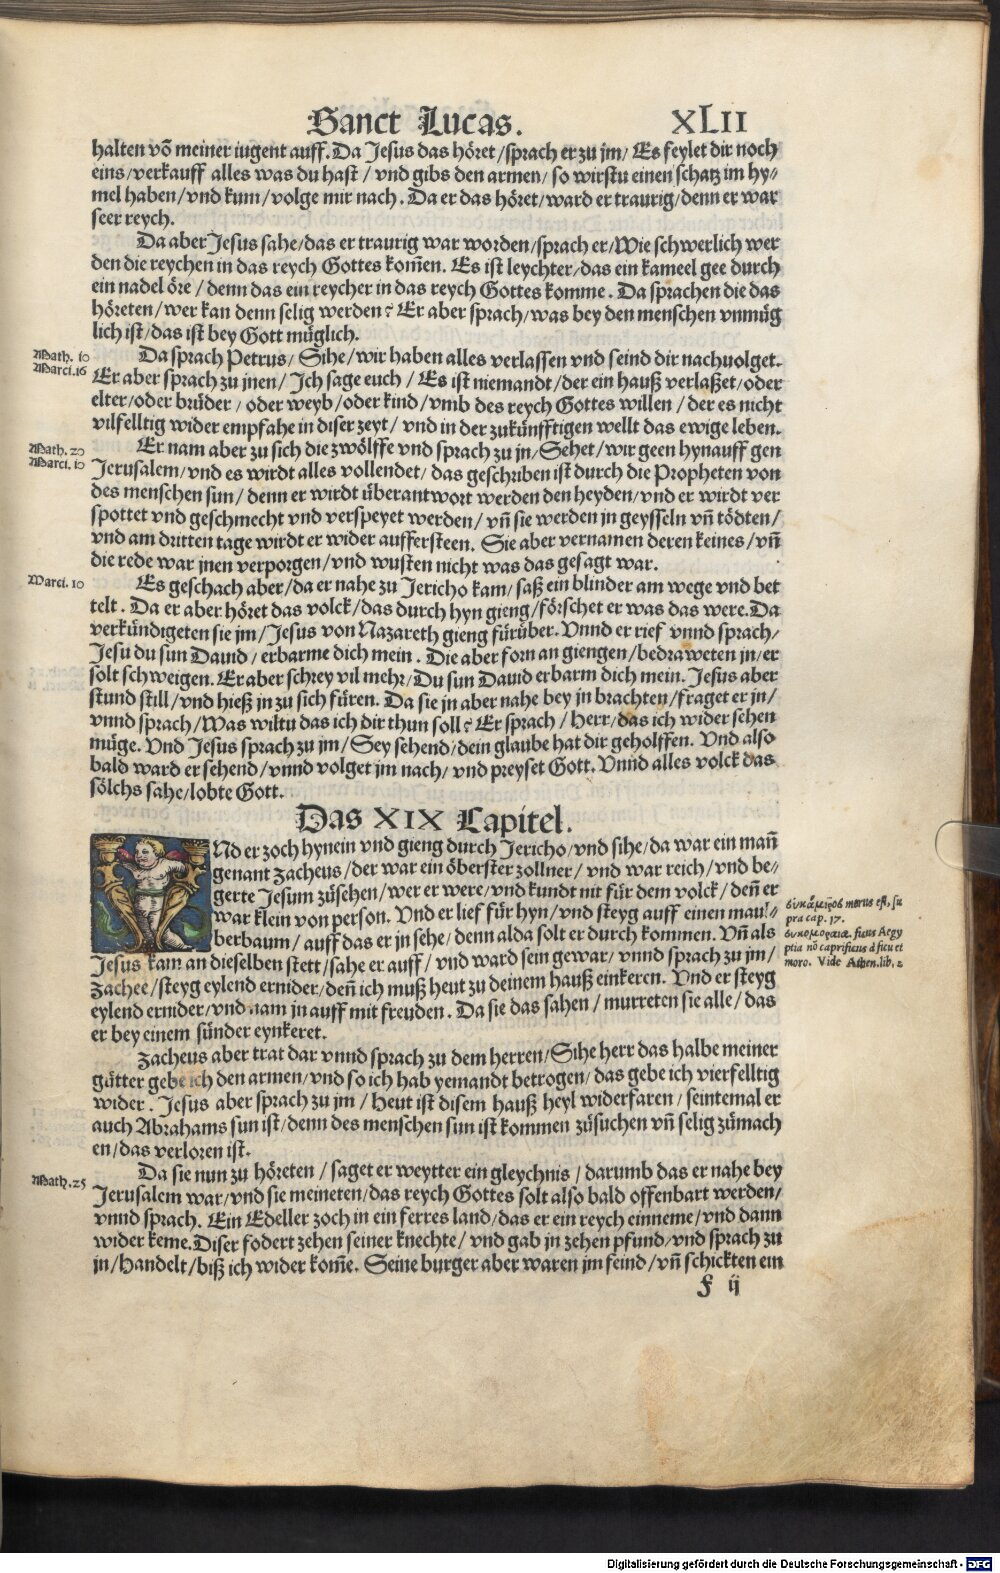 Sanct Lucas. XLII
halten võ meiner iugent auff. Da Jesus das höret/sprach er zu jm/ Es feylet dir noch
eins/verkauff alles was du hast/ vnd gibs den armen/ so wirstu einen schatz im hy⸗
mel haben/vnd kum/volge mir nach. Da er das höret/ward er traurig/denn er war
seer reych.
Da aber Jesus sahe/das er traurig war worden/sprach er/Wie schwerlich wer
den die reychen in das reych Gottes kom̃en. Es ist leychter/das ein kameel gee durch
ein nadel öre/ denn das ein reycher in das reych Gottes komme. Da sprachen die das
höreten/wer kan denn selig werden? Er aber sprach/was bey den menschen vnmüg
lich ist/das ist bey Gott müglich.
Math. 10
Marci. 16
Da sprach Petrus/ Sihe/wir haben alles verlassen vnd seind dir nachuolget.
Er aber sprach zu jnen/ Ich sage euch/ Es ist niemandt/der ein hauß verlaßet/oder
elter/oder brüder/ oder weyb/oder kind/vmb des reych Gottes willen/der es nicht
vilfelltig wider empfahe in diser zeyt/ vnd in der zukünfftigen wellt das ewige leben.
Math. 20
Marci. 10
Er nam aber zu sich die zwölffe vnd sprach zu jn/Sehet/wir geen hynauff gen
Jerusalem/vnd es wirdt alles vollendet/das geschriben ist durch die Propheten von
des menschen sun/denn er wirdt überantwort werden den heyden/vnd er wirdt ver
spottet vnd geschmecht vnd verspeyet werden/vñ sie werden jn geysseln vñ tödten/
vnd am dritten tage wirdt er wider auffersteen. Sie aber vernamen deren keines/vñ
die rede war jnen verporgen/vnd wusten nicht was das gesagt war.
Marci. 10
Es geschach aber/da er nahe zu Jericho kam/saß ein blinder am wege vnd bet
telt. Da er aber höret das volck/das durch hyn gieng/förschet er was das were. Da
verkündigeten sie jm/Jesus von Nazareth gieng fürüber. Vnnd er rief vnnd sprach/
Jesu du sun Dauid/erbarme dich mein. Die aber forn an giengen/bedraweten jn/er
solt schweigen. Er aber schrey vil mehr/Du sun Dauid erbarm dich mein. Jesus aber
stund still/vnd hieß jn zu sich füren. Da sie jn aber nahe bey jn brachten/fraget er jn/
vnnd sprach/Was wiltu das ich dir thun soll? Er sprach/ Herr/das ich wider sehen
müge. Vnd Jesus sprach zu jm/Sey sehend/dein glaube hat dir geholffen. Vnd also
bald ward er sehend/vnnd volget jm nach/vnd preyset Gott. Vnnd alles volck das
sölchs sahe/lobte Gott.
Das XIX Capitel.
VNd er zoch hynein vnd gieng durch Jericho/vnd sihe/da war ein mañ
genant Zacheus/der war ein öberster zollner/ vnd war reich/vnd be⸗
gerte Jesum züsehen/wer er were/vnd kundt nit für dem volck/deñ er
war klein von person. Vnd er lief für hyn/vnd steyg auff einen maul⸗
berbaum/auff das er jn sehe/denn alda solt er durch kommen. Vñ als
Jesus kam an dieselben stett/sahe er auff/vnd ward sein gewar/vnnd sprach zu jm/
Zachee/steyg eylend ernider/deñ ich muß heut zu deinem hauß einkeren. Vnd er steyg
eylend ernider/vnd nam jn auff mit freuden. Da sie das sahen/murreten sie alle/das
er bey einem sünder eynkeret.
συκάμινος morus est, su
pra cap. 17.
συκομοραια ficus Aegy
ptia nõ caprificus à ficu et
moro. Vide Athen. lib. 2
Zacheus aber trat dar vnnd sprach zu dem herren/Sihe herr das halbe meiner
gütter gebe ich den armen/vnd so ich hab yemandt betrogen/das gebe ich vierfelltig
wider. Jesus aber sprach zu jm/Heut ist disem hauß heyl widerfaren/seintemal er
auch Abrahams sun ist/denn des menschen sun ist kommen züsuchen vñ selig zümach
en/das verloren ist.
Math. 25
Da sie nun zu höreten/saget er weytter ein gleychnis/darumb das er nahe bey
Jerusalem war/vnd sie meineten/das reych Gottes solt also bald offenbart werden/
vnnd sprach. Ein Edeller zoch in ein ferres land/das er ein reych einneme/vnd dann
wider keme. Diser fodert zehen seiner knechte/vnd gab jn zehen pfund/vnd sprach zu
jn/Handelt/biß ich wider kom̃e. Seine burger aber waren jm feind/vñ schickten ein
f ij
Digitalisierung gefördert durch die Deutsche Forschungsgemeinschaft - DFG